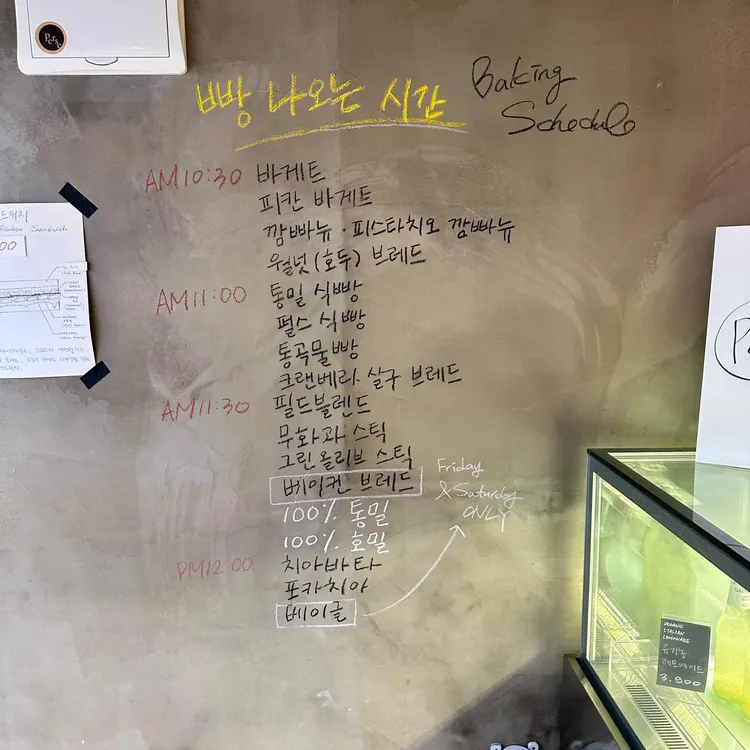 빵 나오는 시간
Baking
Schedule
AM10:30 바게트
피칸 바게트
깜빠뉴 · 피스타치오 깜빠뉴
월넛 (호두) 브레드
AM11:00 통밀 식빵
펄스 식빵
통곡물빵
크랜베리 살구 브레드
AM11:30 필드블렌드
무화과 스틱
그린올리브 스틱
베이컨 브레드
100% 통밀
100% 호밀
Friday
&Saturday
ONLY
PM12:00 치아바타
포카치아
베이글
Reuben Sandwich
ORGANIC
ITALIAN
LEMONADE
유기농
레모네이드
3.900